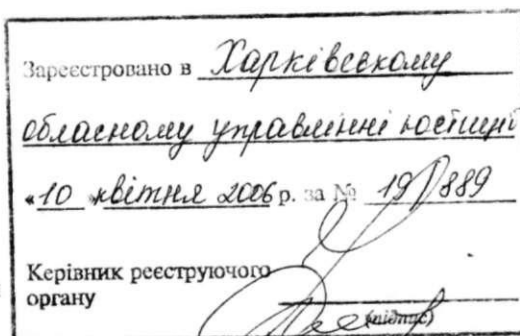 Зареєстровано в Харківському
обласному управлінні юстиції
«10» квітня 2006 р. за № 19/889
Керівник реєструючого
органу
(підпис)